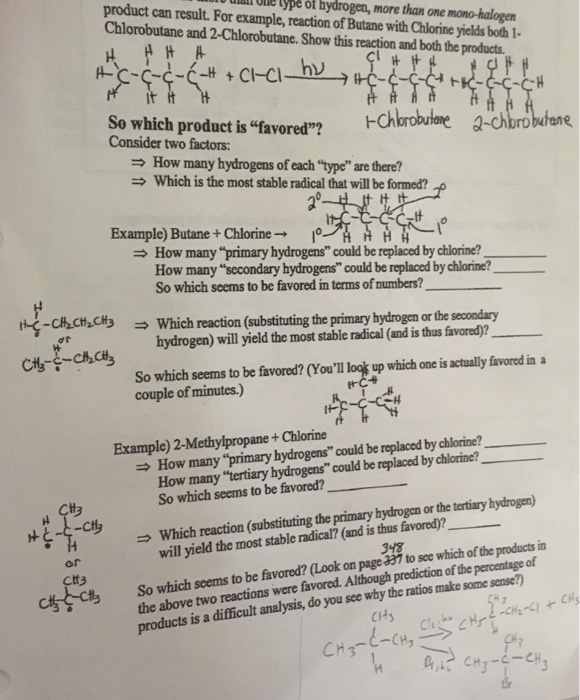 one type of hydrogen, more than one mono-halogen
product can result. For example, reaction of Butane with Chlorine yields both 1-
Chlorobutane and 2-Chlorobutane. Show this reaction and both the products.
H H H H Cl H H H H Cl H H
H-C-C-C-C-H + Cl-Cl hν → H-C-C-C-C-H + H-C-C-C-C-H
H H H H H H H H H H H H
1-Chlorobutane 2-chlorobutane
So which product is "favored"?
Consider two factors:
⇒ How many hydrogens of each "type" are there?
⇒ Which is the most stable radical that will be formed?
2° H H H H 2°
H-C-C-C-C-H
Example) Butane + Chlorine → 1° H H H H 1°
⇒ How many "primary hydrogens" could be replaced by chlorine?
How many "secondary hydrogens" could be replaced by chlorine?
So which seems to be favored in terms of numbers?
H
H-C-CH2CH2CH3
or
H
CH3-C-CH2CH3
⇒ Which reaction (substituting the primary hydrogen or the secondary
hydrogen) will yield the most stable radical (and is thus favored)?
So which seems to be favored? (You'll look up which one is actually favored in a
couple of minutes.)
H-C-H
H-C-C-C-H
H H H
Example) 2-Methylpropane + Chlorine
⇒ How many "primary hydrogens" could be replaced by chlorine?
How many "tertiary hydrogens" could be replaced by chlorine?
So which seems to be favored?
CH3
H-C-C-CH3
H
or
CH3
CH3-C-CH3
⇒ Which reaction (substituting the primary hydrogen or the tertiary hydrogen)
will yield the most stable radical? (and is thus favored)?
348
So which seems to be favored? (Look on page 337 to see which of the products in
the above two reactions were favored. Although prediction of the percentage of
products is a difficult analysis, do you see why the ratios make some sense?)
CH3
CH3-C-CH3
H
CH3
CH3-C-CH2-Cl + CH3
H
CH3
CH3-C-CH3
Br